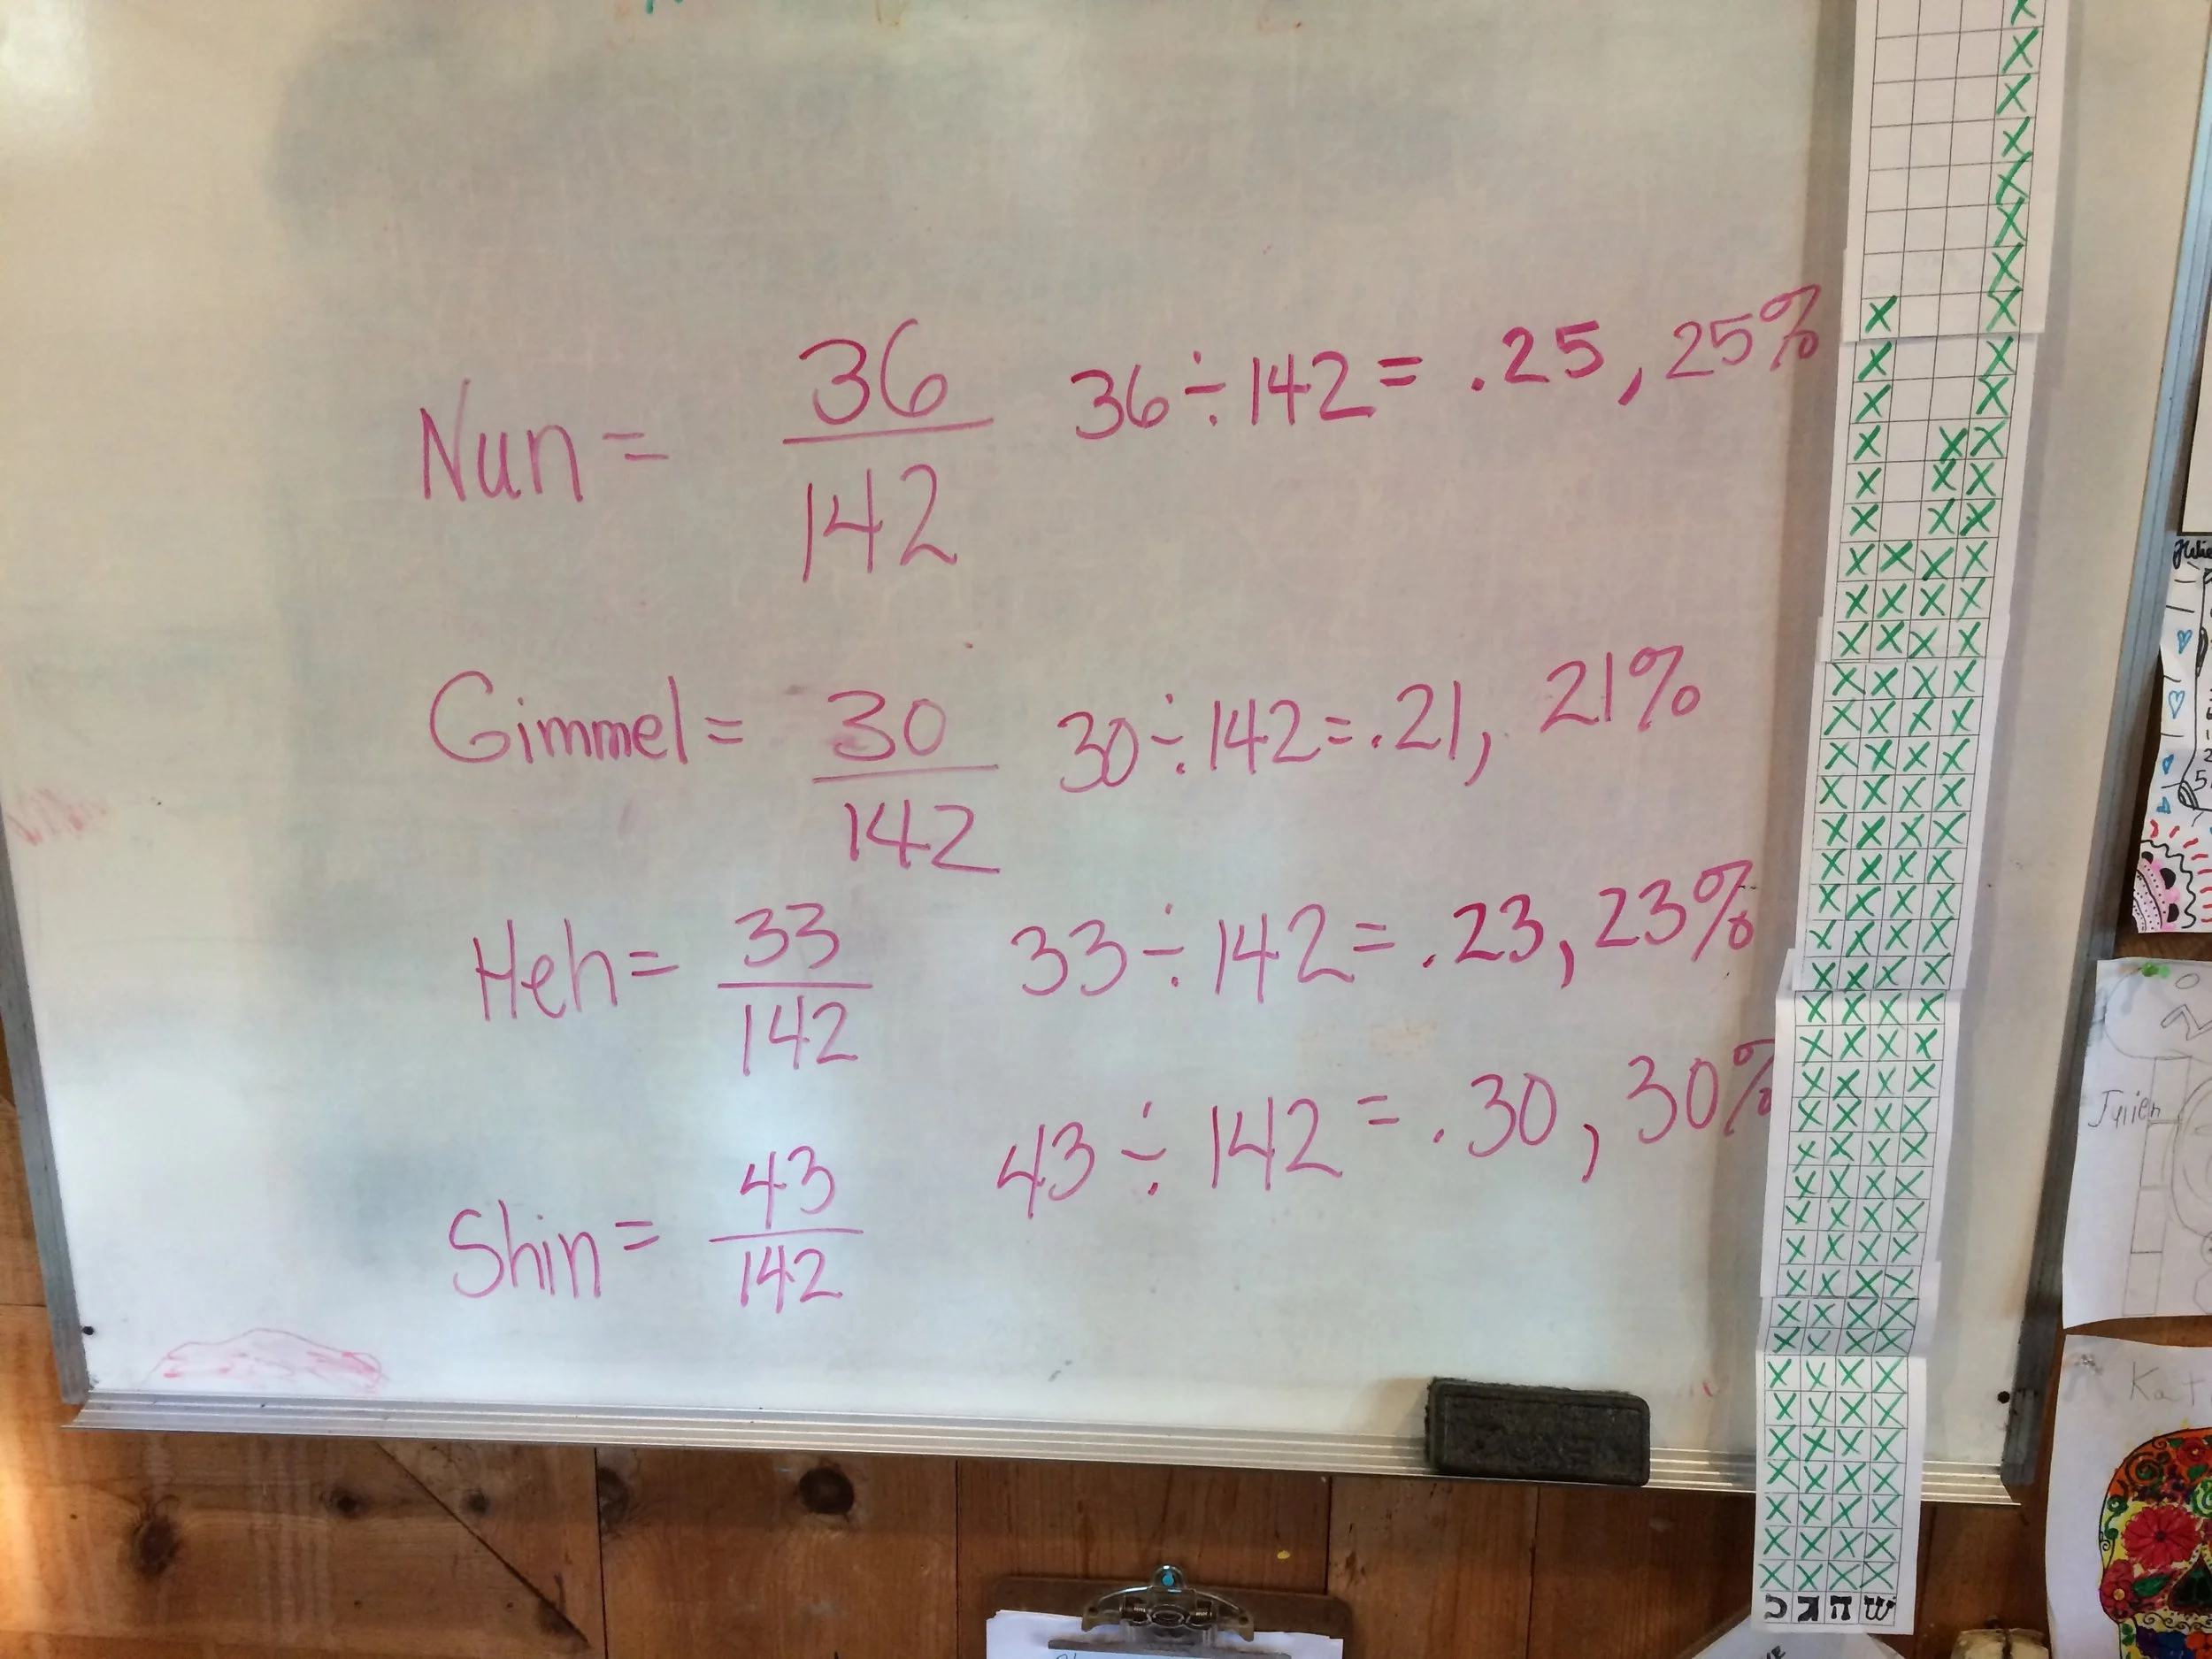 Nun = 36/142 36 ÷ 142 = .25, 25%
Gimmel = 30/142 30 ÷ 142 = .21, 21%
Heh = 33/142 33 ÷ 142 = .23, 23%
Shin = 43/142 43 ÷ 142 = .30, 30%
נ ג ה ש
Julien
Kat